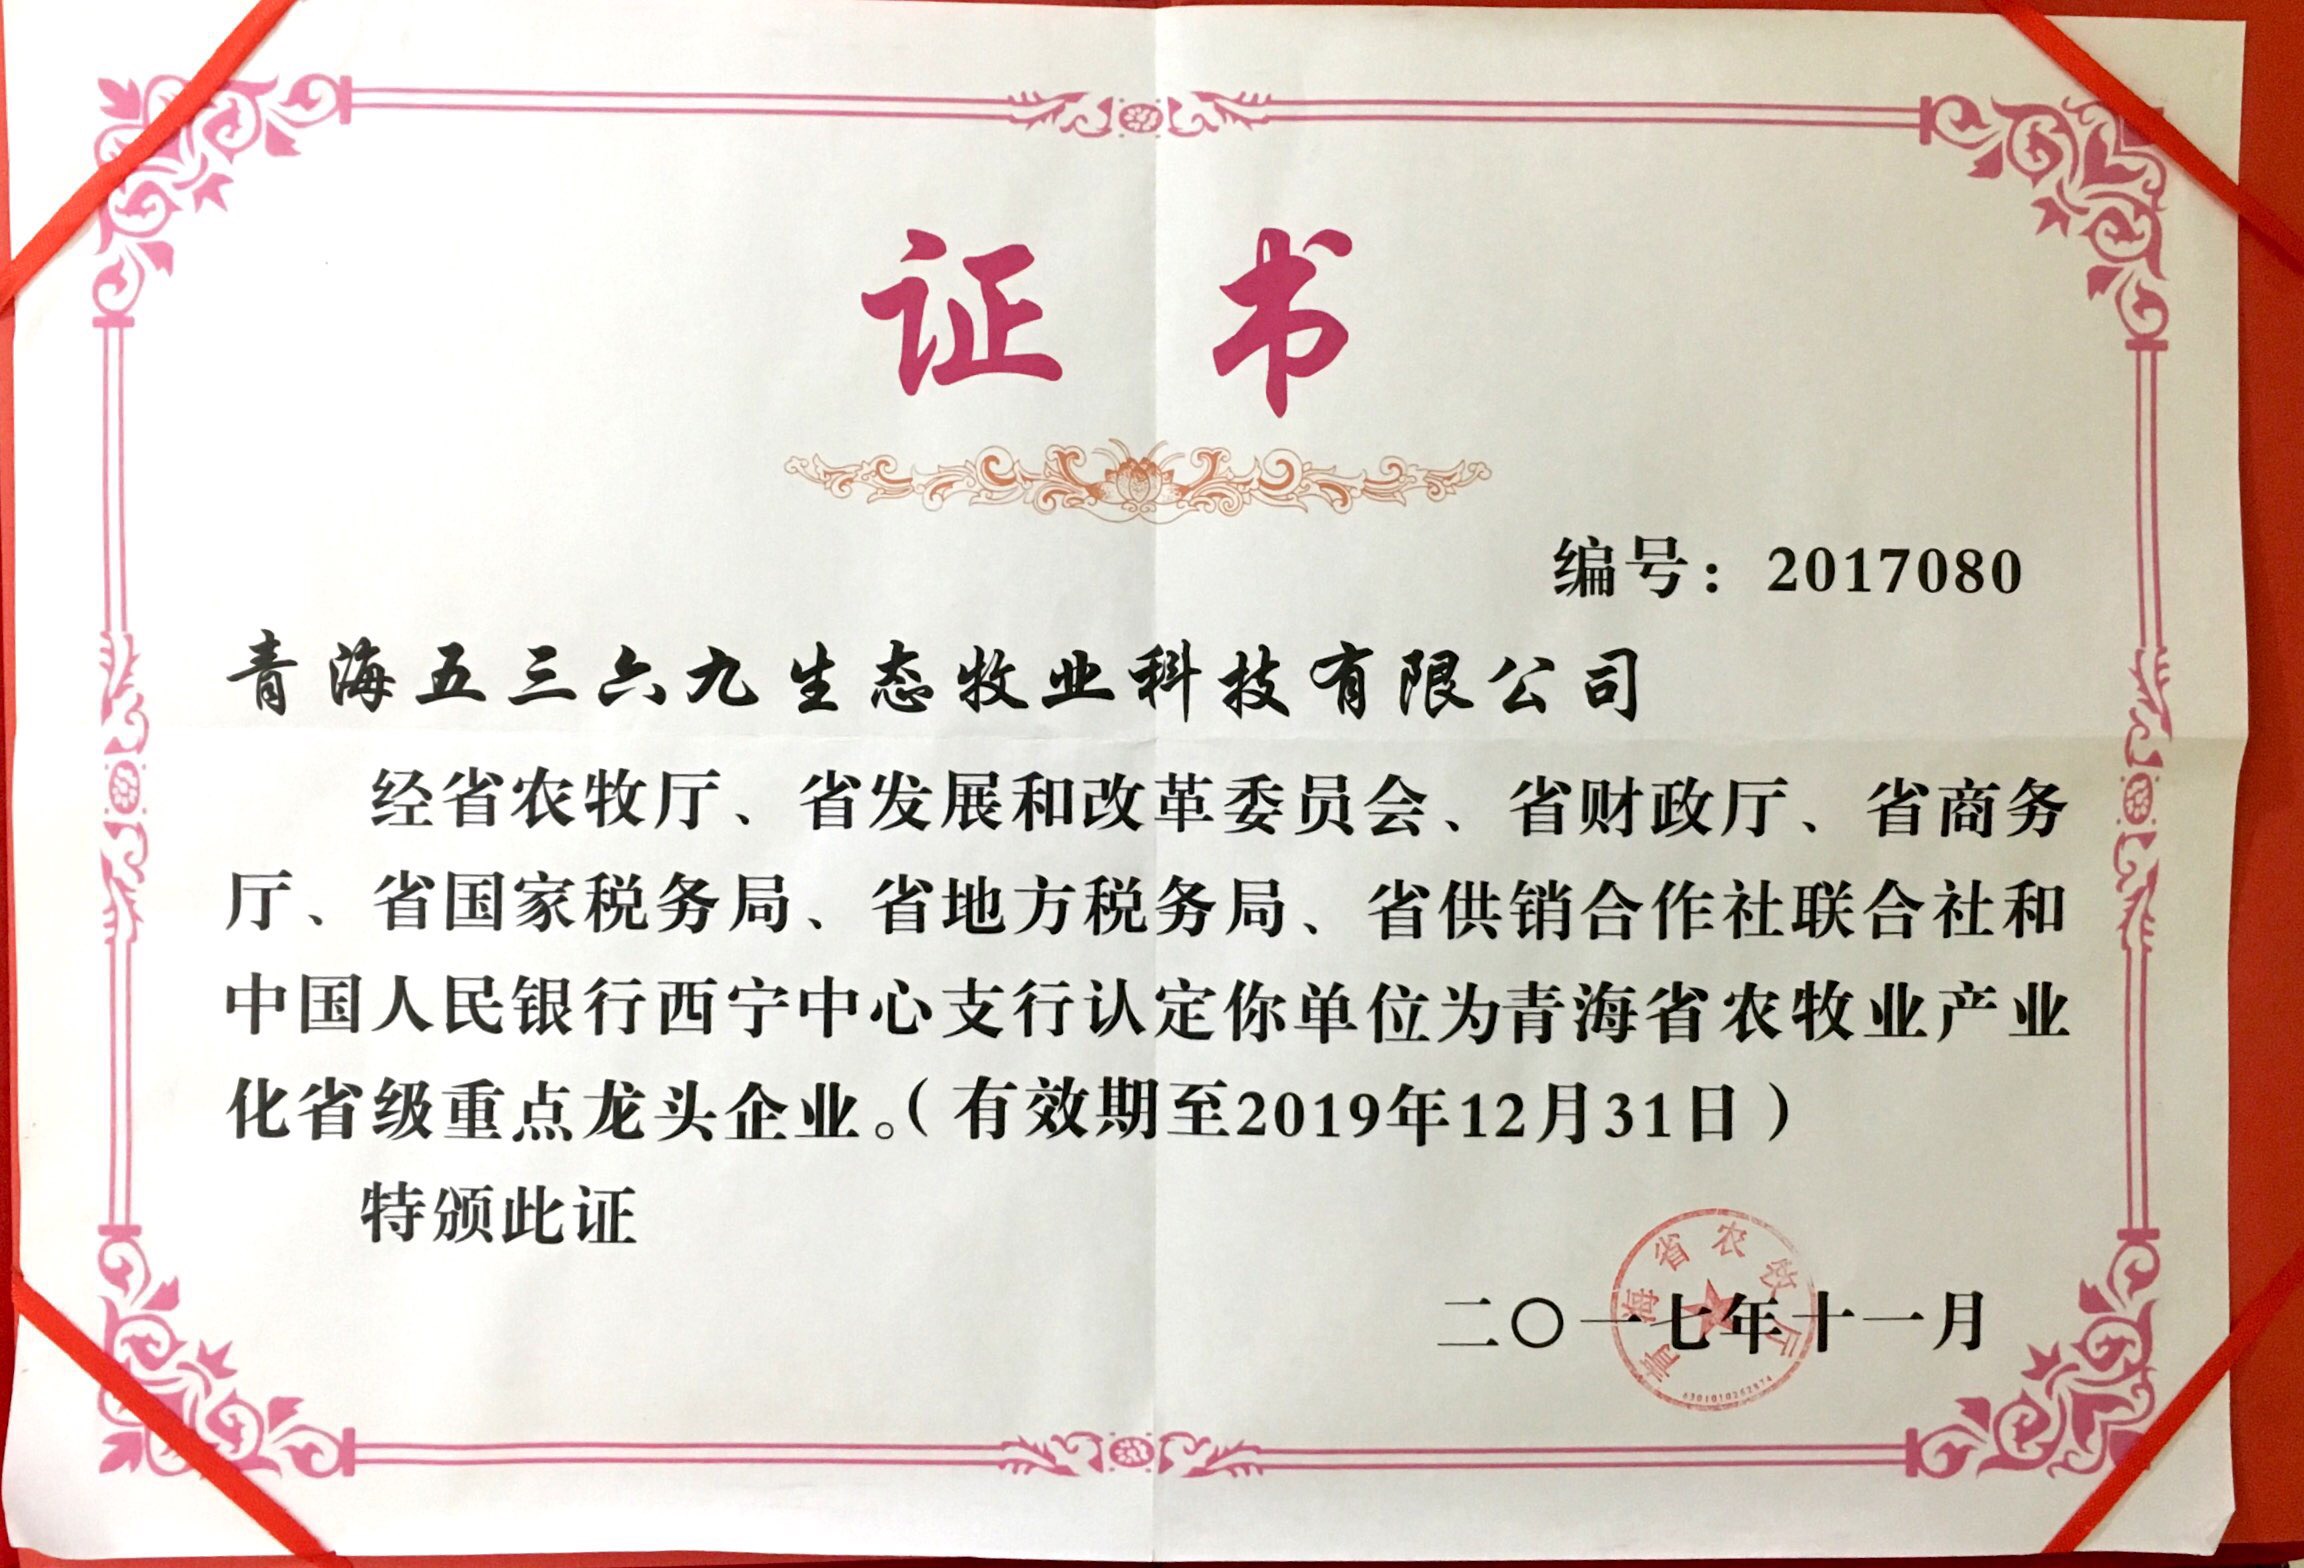 证书
编号：2017080
青海五三六九生态牧业科技有限公司
经省农牧厅、省发展和改革委员会、省财政厅、省商务
厅、省国家税务局、省地方税务局、省供销合作社联合社和
中国人民银行西宁中心支行认定你单位为青海省农牧业产业
化省级重点龙头企业。（有效期至2019年12月31日）
特颁此证
青海省农牧厅
二〇一七年十一月